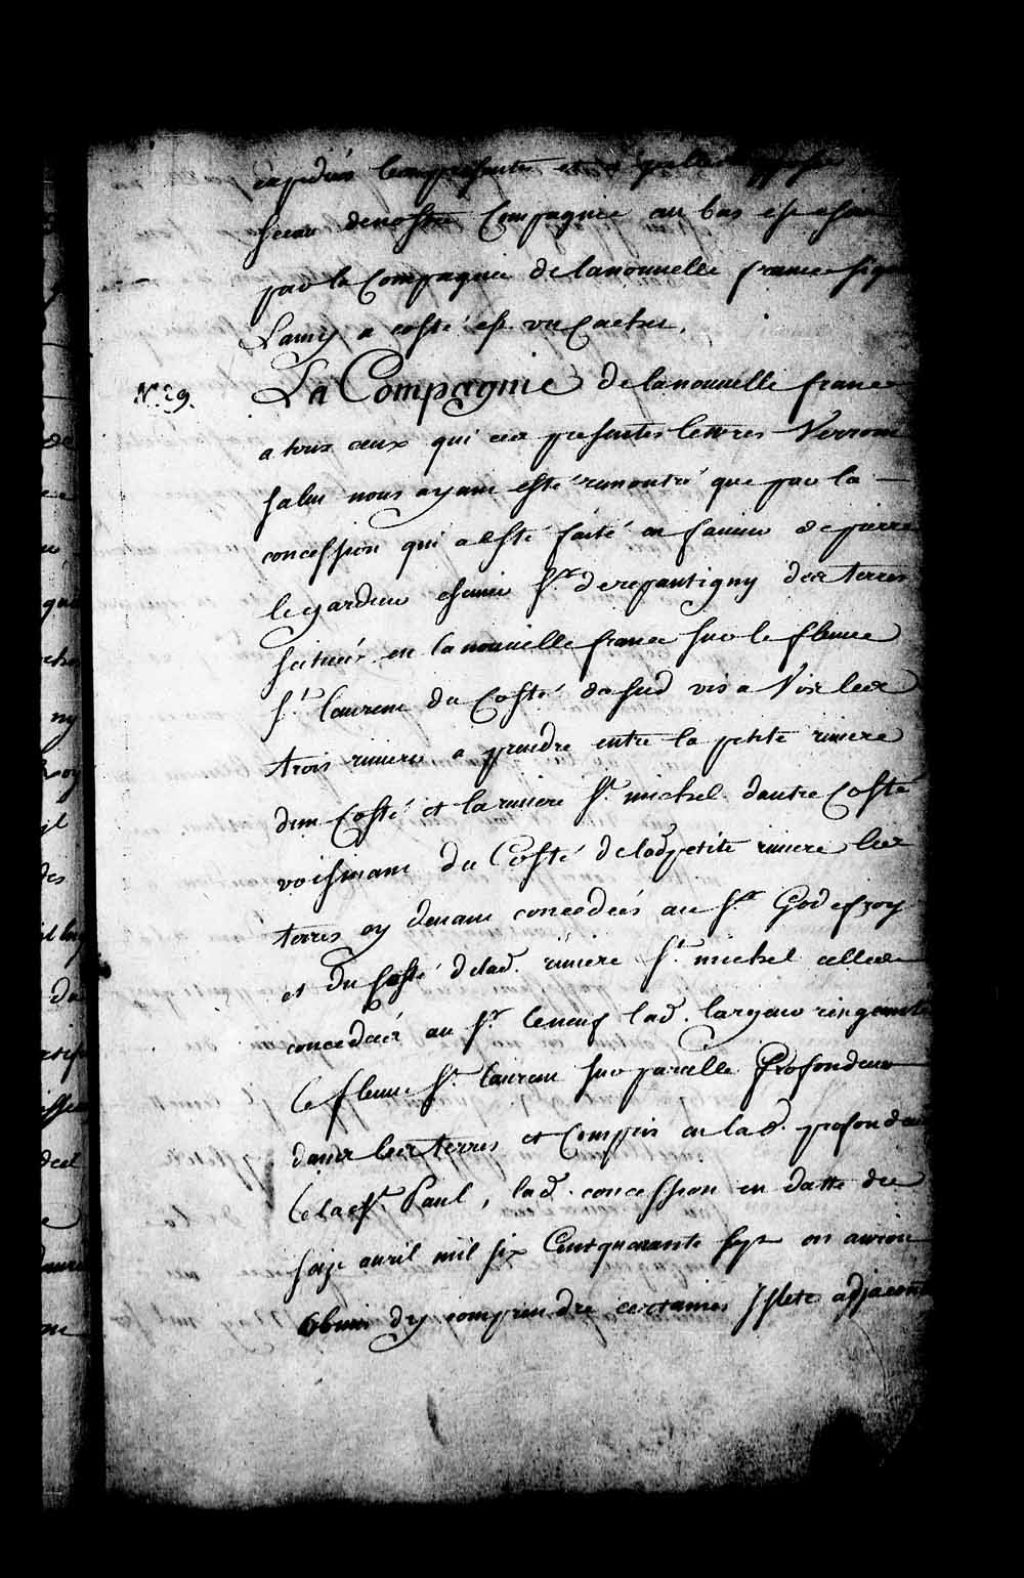 expediés les presentes et a icelles apposé
sceau de nostre Compagnie au bas est escrit
par la Compagnie de la nouvelle france signé
Lamy a costé est un Cachet.
N.º 29. La Compagnie de la nouvelle france
a tous ceux qui ces presentes lettres Verront
salut nous ayant esté remontré que par la —
concession qui a esté faite en faveur de pierre
legardeur escuier Sr. derepantigny des terres
scitueés en la nouvelle france sur le fleuve
St. laurent du Costé du sud vis a Vis les
trois rivieres a prendre entre la petite riviere
dun Costé et la riviere St. michel dautre Costé
voisinant du Costé de lad petite riviere les
terres cy devant concedeés au Sr. Godefroy
et du Costé de lad. riviere St. michel celles
concedeés au Sr. leneuf lad. largeur
le fleuve St. laurent sur pareille Profondeur
dans les terres et Compris en lad. profondeur
le lac St. Paul, lad. concession en datte du
saize avril mil six Cent quarante sept on auroit
obmis dy comprendre certaines Islets adjacents